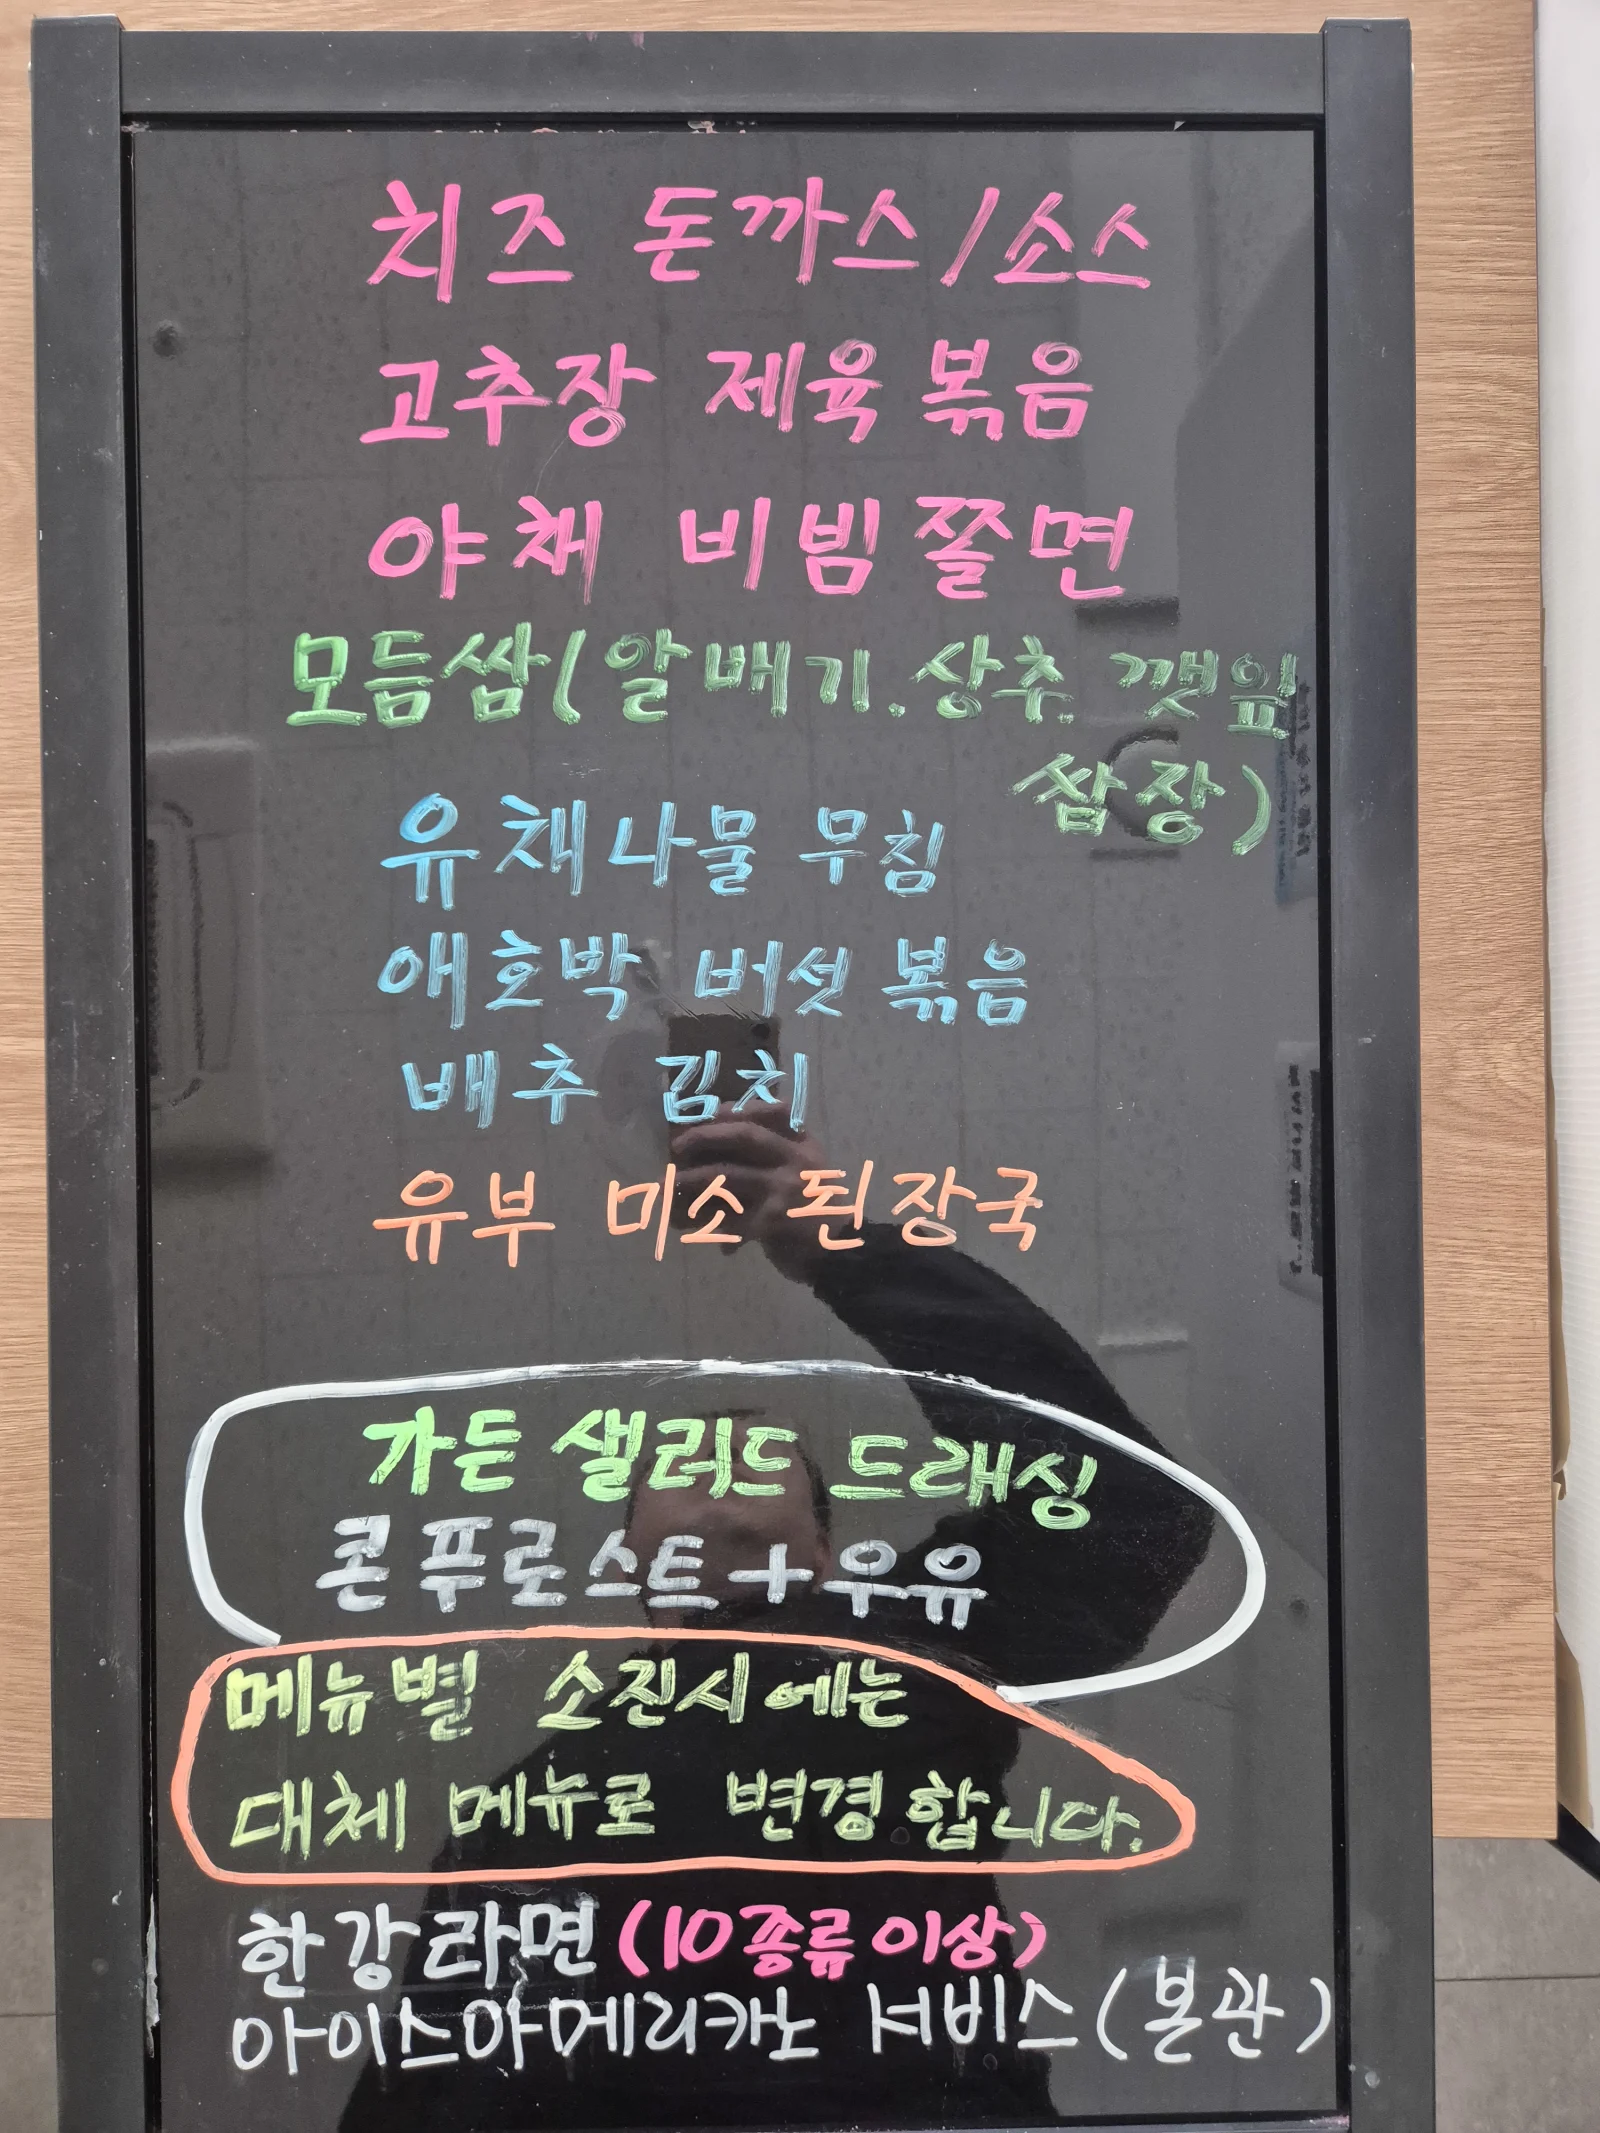 치즈 돈까스/소스
고추장 제육볶음
야채 비빔쫄면
모듬쌈(알배기.상추.깻잎
쌈장)
유채나물 무침
애호박 버섯볶음
배추 김치
유부 미소 된장국
가든 샐러드 드래싱
콘푸로스트+우유
메뉴별 소진시에는
대체 메뉴로 변경합니다.
한강라면(10종류이상)
아이스아메리카노 서비스(본관)